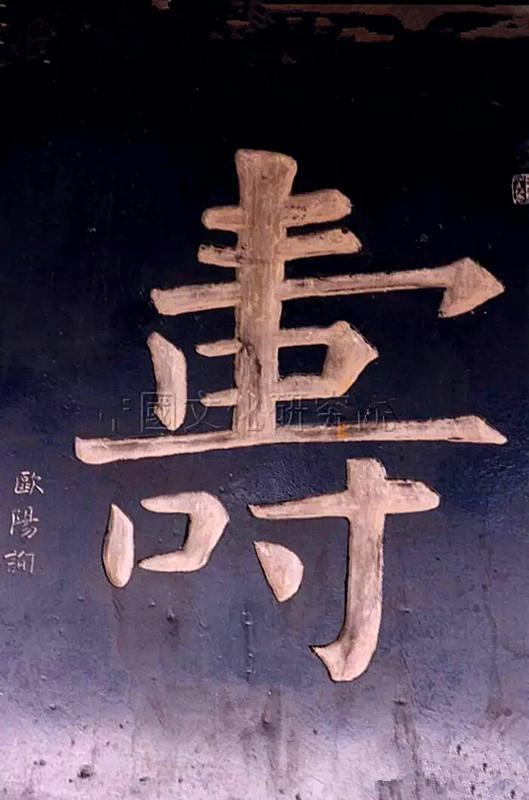 壽
歐陽詢
中國文化研究院